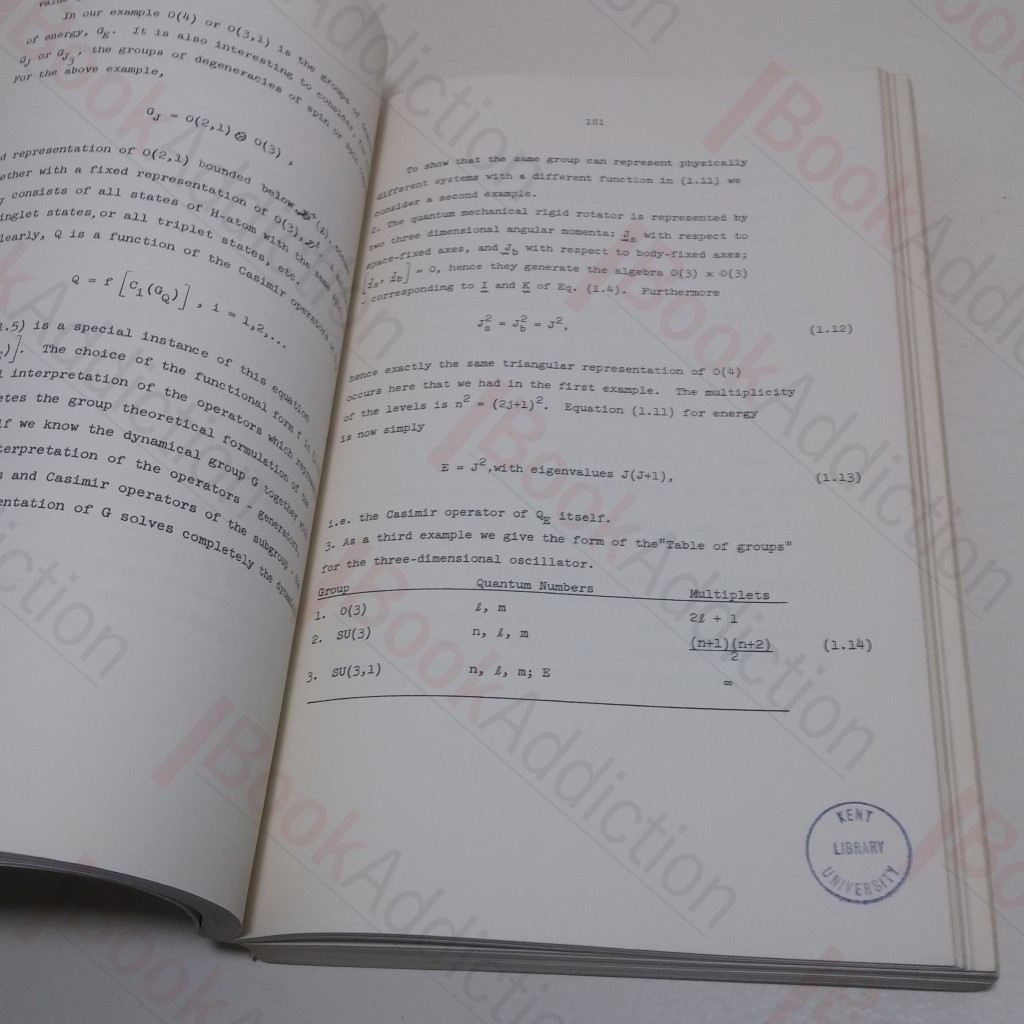 In our example O(4) or O(3,1) is the groups of
of energy, G_E. It is also interesting to consider,
G_J or G_J3, the groups of degeneracies of spin or spin
For the above example,
G_J = O(2,1) ⊗ O(3) ,
representation of O(2,1) bounded below
ether with a fixed representation of O(3),
consists of all states of H-atom with the same spin,
inglet states, or all triplet states, etc.
learly, Q is a function of the Casimir operators of
Q = f [C_i(G_Q)] , i = 1,2,...
1.5) is a special instance of this equation
)]. The choice of the functional form f in
interpretation of the operators which
etes the group theoretical formulation of the
if we know the dynamical group G together
terpretation of the operators - generators,
s and Casimir operators of the subgroup - the
entation of G solves completely the
101
To show that the same group can represent physically
different systems with a different function in (1.11) we
consider a second example.
2. The quantum mechanical rigid rotator is represented by
two three dimensional angular momenta: J_s with respect to
space-fixed axes, and J_b with respect to body-fixed axes;
[J_s, J_b] = 0, hence they generate the algebra O(3) x O(3)
corresponding to I and K of Eq. (1.4). Furthermore
J_s^2 = J_b^2 = J^2, (1.12)
hence exactly the same triangular representation of O(4)
occurs here that we had in the first example. The multiplicity
of the levels is n^2 = (2j+1)^2. Equation (1.11) for energy
is now simply
E = J^2,with eigenvalues J(J+1), (1.13)
i.e. the Casimir operator of Q_E itself.
3. As a third example we give the form of the"Table of groups"
for the three-dimensional oscillator.
Group Quantum Numbers Multiplets
1. O(3) ℓ, m 2ℓ + 1
2. SU(3) n, ℓ, m (n+1)(n+2)/2 (1.14)
3. SU(3,1) n, ℓ, m; E ∞
KENT
LIBRARY
UNIVERSITY
BookAddiction